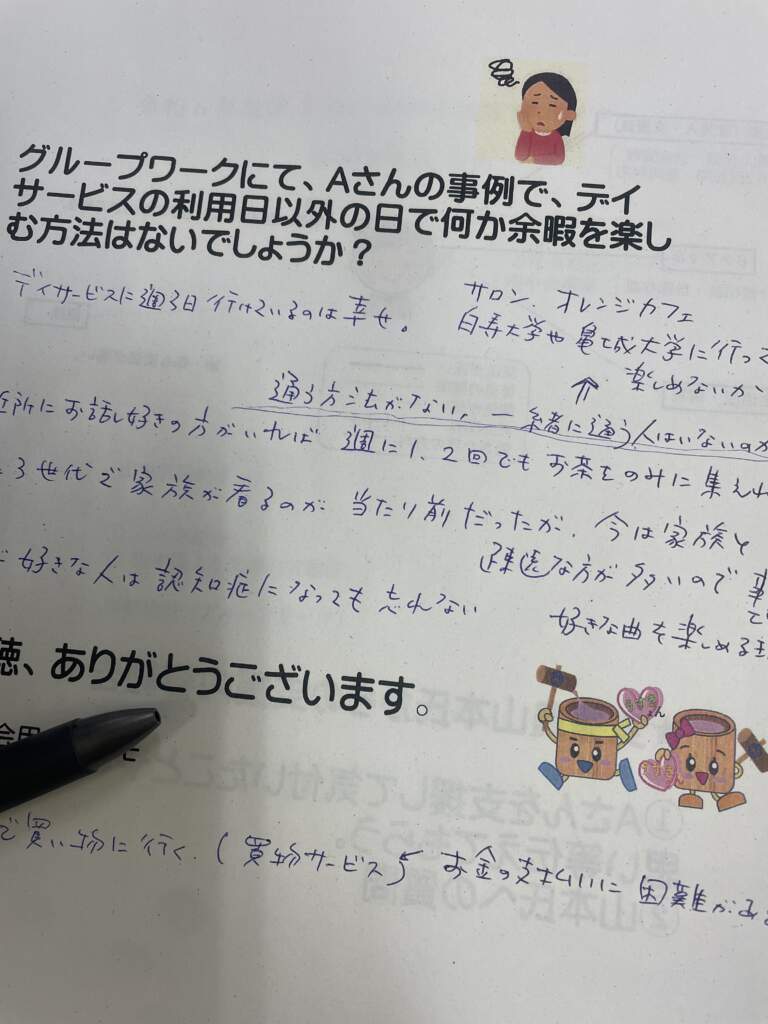 グループワークにて、Aさんの事例で、デイ
サービスの利用日以外の日で何か余暇を楽し
む方法はないでしょうか？
デイサービスに週3日行けているのは幸せ。
サロン、オレンジカフェ
白寿大学や亀城大学に行って
楽しめないか
↑
通う方法がない、一緒に通う人はいないのか
近所にお話し好きの方がいれば 週に1、2回でもお茶をのみに集えれ
3世代で家族が看るのが 当たり前だったが、今は家族と
疎遠な方が多いので
好きな人は認知症になっても忘れない
好きな曲を楽しめる
聴、ありがとうございます。
うすきょん
うすきん
で買い物に行く、(買物サービス) お金の支払いに困難がある
①Aさんを支援して気付いたこと
②山本氏への質問